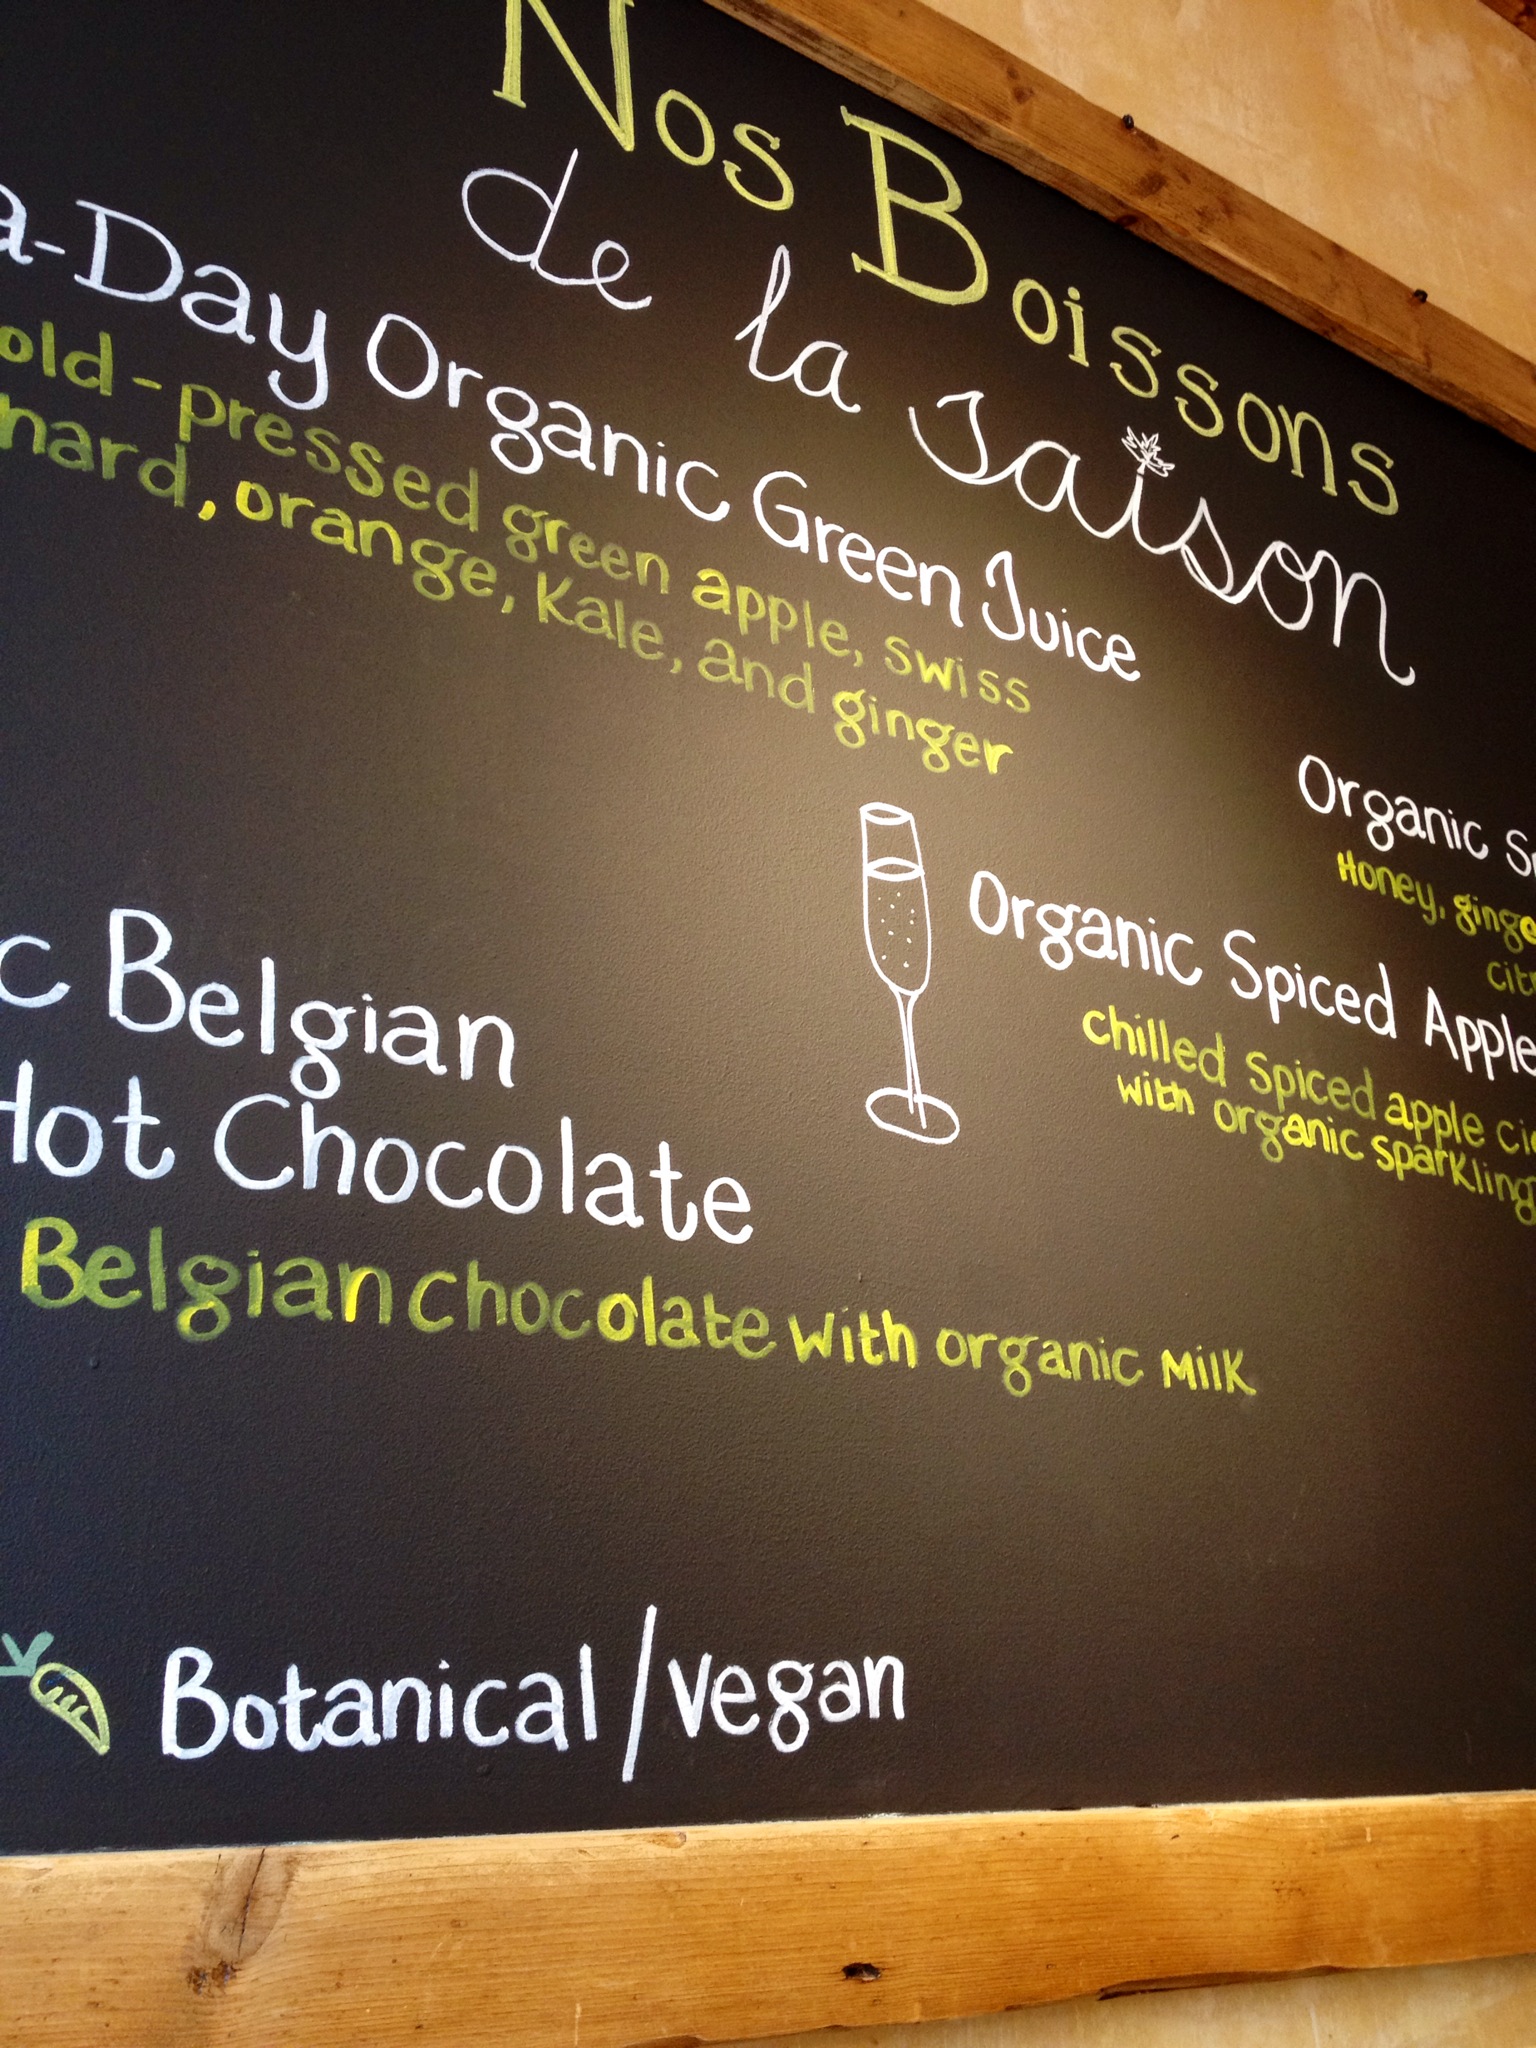 Nos Boissons
de la Saison
a-Day Organic Green Juice
old-pressed green apple, swiss
hard, orange, Kale, and ginger
Organic
Honey, ginge
cit
Organic Spiced Apple
chilled spiced apple ci
with organic sparkling
c Belgian
Hot Chocolate
Belgian chocolate with organic Milk
Botanical/vegan